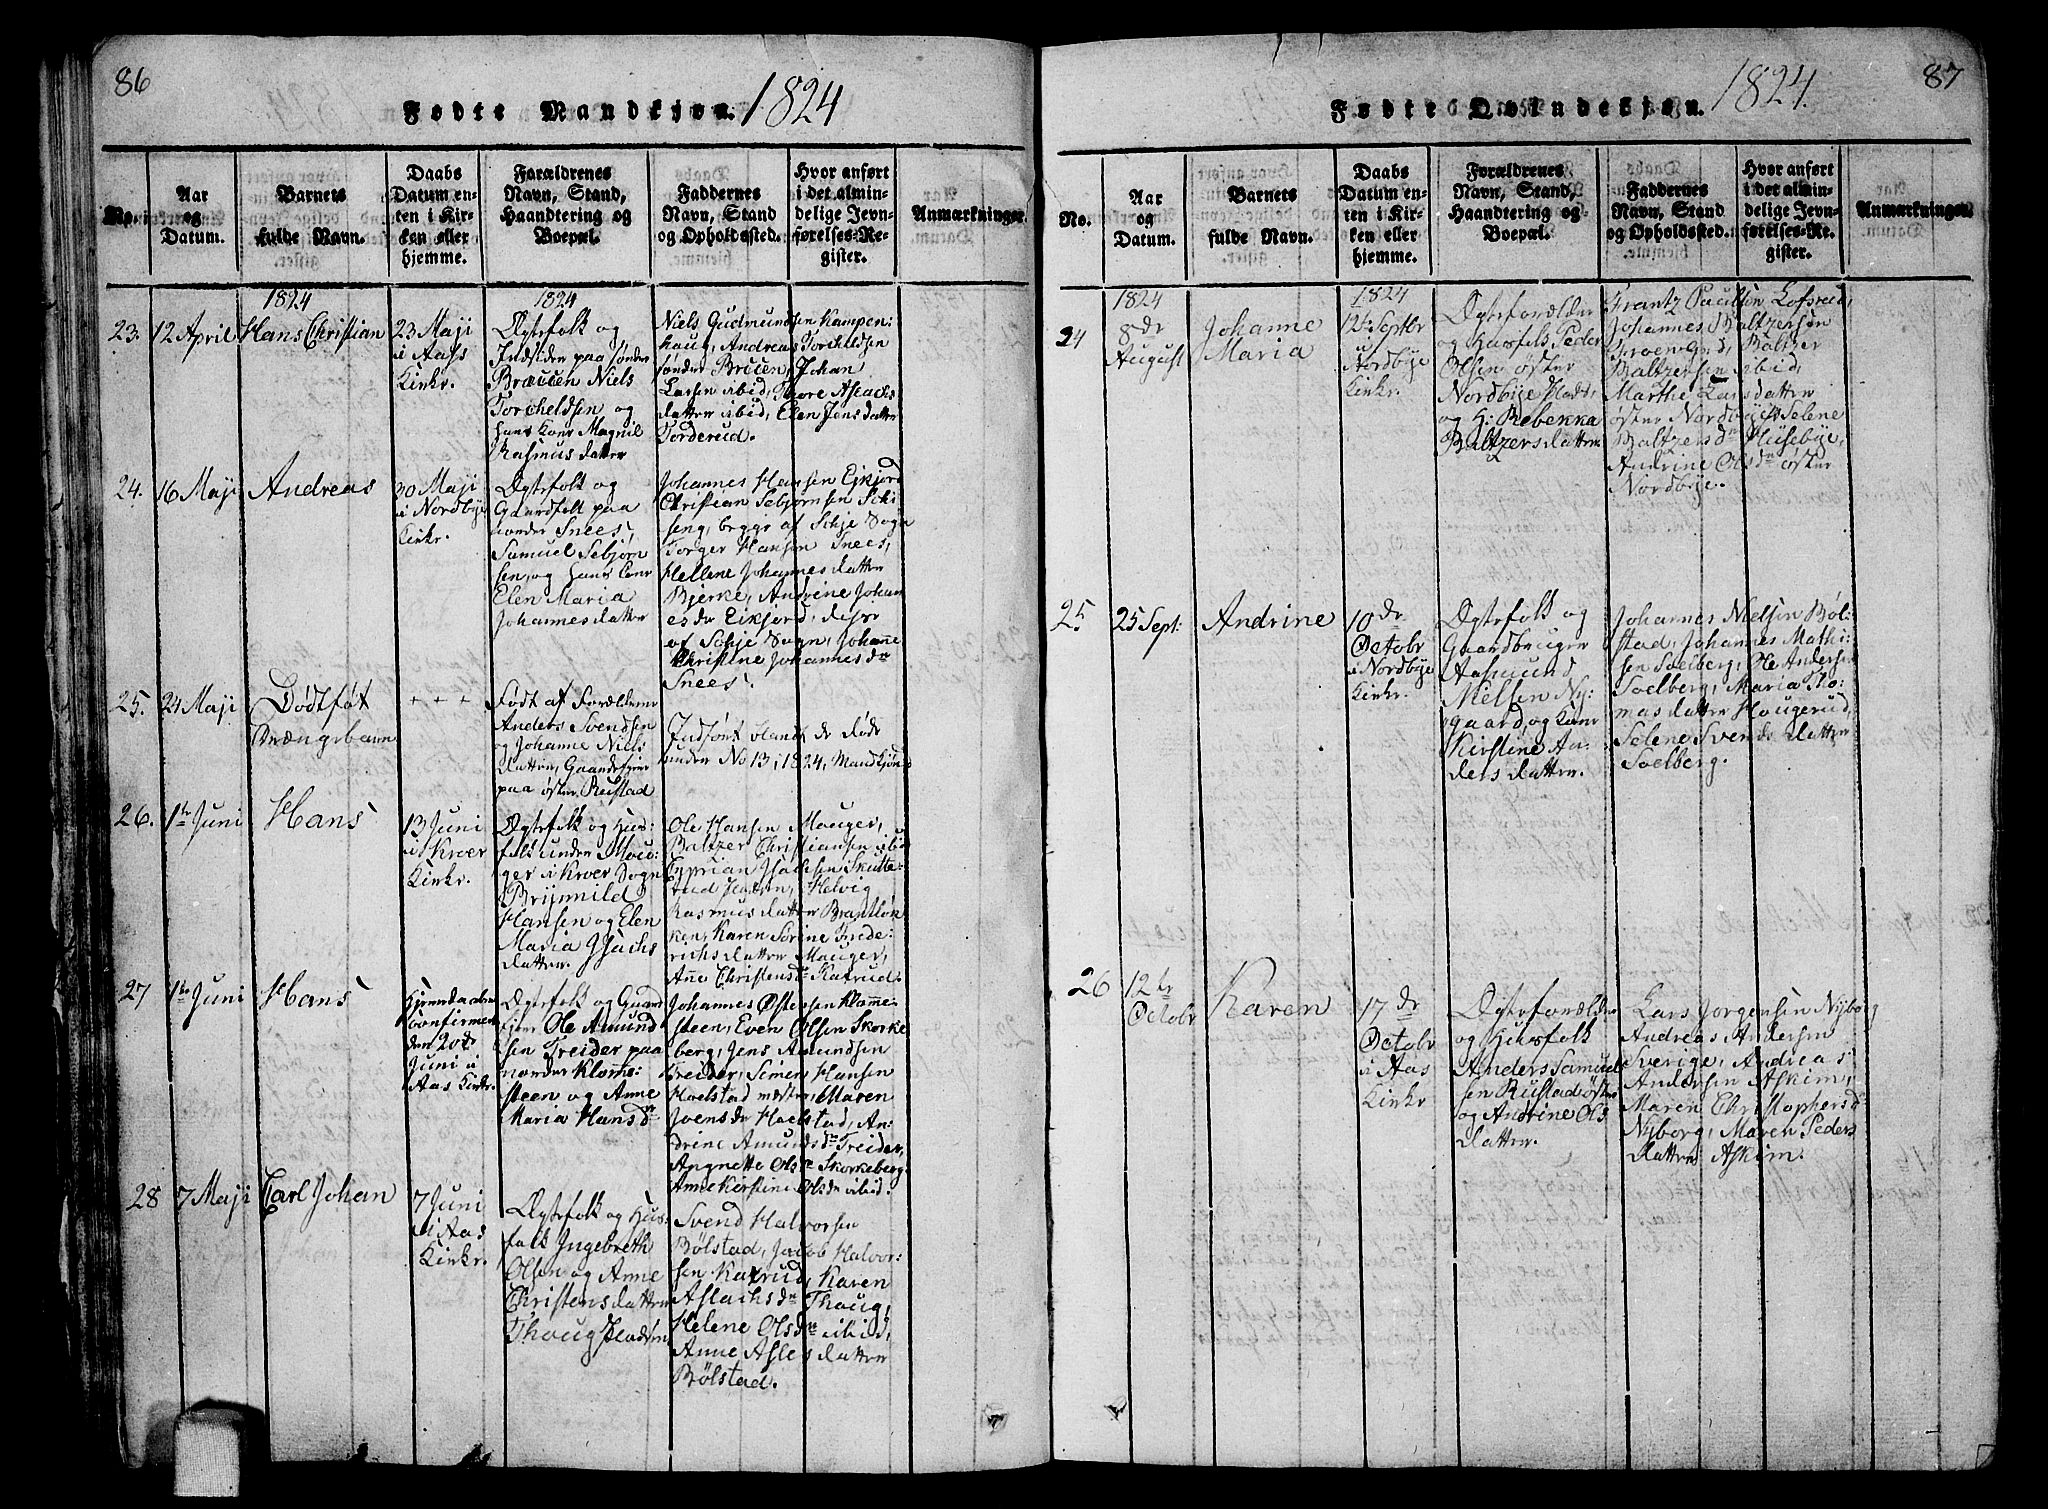 86
Fødte Mandkjøn. 1824
No.
Aar
og
Datum.
Barnets
fulde Navn.
Daabs
Datum en-
ten i Kir-
ken eller
hjemme.
Forældrenes
Navn, Stand,
Haandtering og
Boepæl.
Faddernes
Navn, Stand
og Opholdssted.
Hvor anført
i det almin-
delige Jevn-
førelses-Re-
gister.
Anmærkninger.
1824
23. 12 April Hans Christian
23 Maji
i Aass
Kirke.
1824
Ægtefolk og
Indsidere paa sønder
Brauen Niels
Torcheldsen og
hans Kone Magnil
Rasmusdatter
Niels Gudmundsen Kampen:
haug, Andreas Torcheldsen
sønder Bruen, Johan
Larsen ibid, Thore Aslachs
datter ibid, Elen Jensdatter
Torderud.
24. 16 Maji Andreas
30 Maji
i Nordbye
Kirke.
Ægtefolk og
Gaardfolk paa
nordre Snees,
Samuel Sebjørn
sen, og hans Cone
Elen Maria
Johannesdatter
Johannes Hansen Eikjord
Christian Sebjørnsen Schi
seng, begge af Schje Sogn
Torger Hansen Snees,
Hellene Johannesdatter
Bjerke, Andrine Johan
esdr Eikjord, disse
af Schje Sogn, Johanne
Christine Johannesdr
Snees.
25. 24 Maji Dødtføt
Drængebarn
+ + +
Født af Forældrene
Anders Svendsen
og Johanne Niels
datter, Gaardejere
paa øster Rustad
Indført blandt de døde
under No 13, 1824, Mandkjøn
26. 1te Juni Hans
13 Juni
i Kroer
Kirke.
Ægtefolk og Hus:
folk under Mou:
ger i Kroer Sogn
Brynnild
Hansen og Elen
Maria Isachs
datter.
Ole Hansen Mauger,
Baltzer Christiansen ibid
Cyprian Isachsen Skutte:
rud Helvig
Rasmusdatter Brantløk
ken, Karen Sørine Frede:
richsdatter Mauger,
Anne Christensdr Katrud.
27 1te Juni Hans
Hjemmedaabens
Confirmert
den 20de
Juni i
Aas Kirke.
Ægtefolk og Gaard
ejere Ole Amund
sen Treider paa
nordre Klomme
steen og Anne
Maria Hansdr
Johannes Østensen Klomme
steen, Even Olsen Skorke
berg, Jens Amundsen
Treider, Simen Hansen
Haelstad mestre, Maren
Jvensdr Haelstad, An
drine Amundsdr Treider,
Angnette Olsdr Skorkeberg
Anne Kirstine Olsdr ibid.
28 7 Maji Carl Johan
7 Juni
i Aas
Kirke.
Ægtefolk og Hus
folk Ingebreth
Olsen og Anne
Christensdatter
Thaug
Svend Halvorsen
Bølstad, Jacob Halvor:
sen Katrud, Karen
Aslachsdr Thaug,
Helene Olsdr ibid,
Anne Aslesdatter
Bølstad.
87
Fødte Qvindekjøn. 1824.
No.
Aar
og
Datum.
Barnets
fulde Navn.
Daabs
Datum en-
ten i Kir-
ken eller
hjemme.
Forældrenes
Navn, Stand,
Haandtering og
Boepæl.
Faddernes
Navn, Stand
og Opholdssted.
Hvor anført
i det almin-
delige Jevn-
førelses-Re-
gister.
Anmærkninger.
1824
24 8de
August
Johanne
Maria
1824
12te Septbr
i Nordbye
Kirke.
Ægteforælder
og Husfolk Peder
Olsen øster
Nordbye
og H: Rebekka
Baltzersdatter.
Frantz Paulsen Lofsrud,
Johannes Baltzersøn
Baltzer
Baltzersen ibid,
Marthe Larsdatter
øster Nordbye, Selene
Baltzersdr Husebye,
Andrine Olsdr øster
Nordbye.
25 25 Sept: Andrine
10de
Octobr
i Nordbye
Kirke.
Ægtefolk og
Gaardbruger
Aasmund
Nielsen Ny:
gaard, og Kone
Kirstine An:
dersdatter.
Johannes Nielsen Bøl:
stad, Johannes Mathi:
sen Soelberg, Ole Andersen
Soelberg, Maria Tho:
masdatter Haugerud,
Selene Svendsdatter
Soelberg.
26 12te
Octobr
Karen
17de
Octobr
i Aas
Kirke
Ægteforælder
og Husfolk
Anders Samuel
sen Rustad øster
og Andrine Ols
datter.
Lars Jorgensen Nyborg
Andreas Andersen
Sverige, Andreas
Andersen Askim,
Maren Christophersdr
Nyborg, Maren Peders
datter Askim.